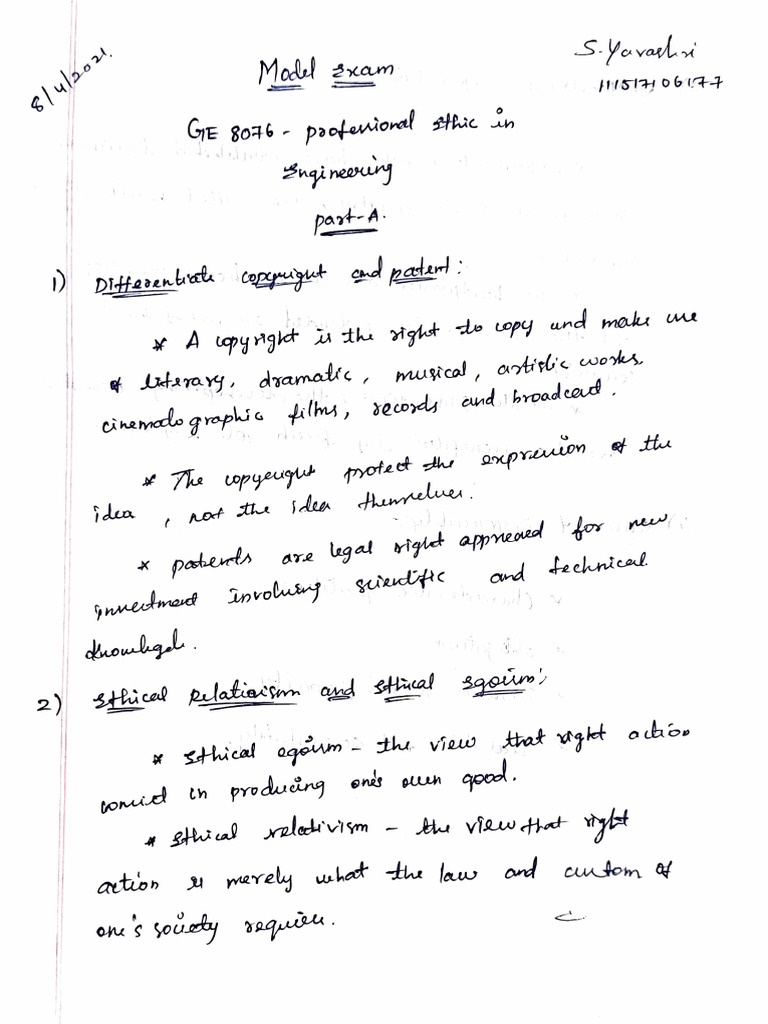 8/4/2021.
Model Exam
S. Yavashri
111517106177
GE 8076 - professional Ethic in
Engineering
part-A.
1) Differentiate copyright and patent:
* A copyright is the right to copy and make use
of literary, dramatic, musical, artistic works,
cinematographic films, records and broadcast.
* The copyright protect the expression of the
idea, not the idea themselves.
* patents are legal right approved for new
investment involving scientific and technical
knowlegde.
2) Ethical Relativism and Ethical Egoism:
* Ethical egoism - the view that right action
consist in producing one's own good.
* Ethical relativism - the view that right
action is merely what the law and custom of
one's society require.